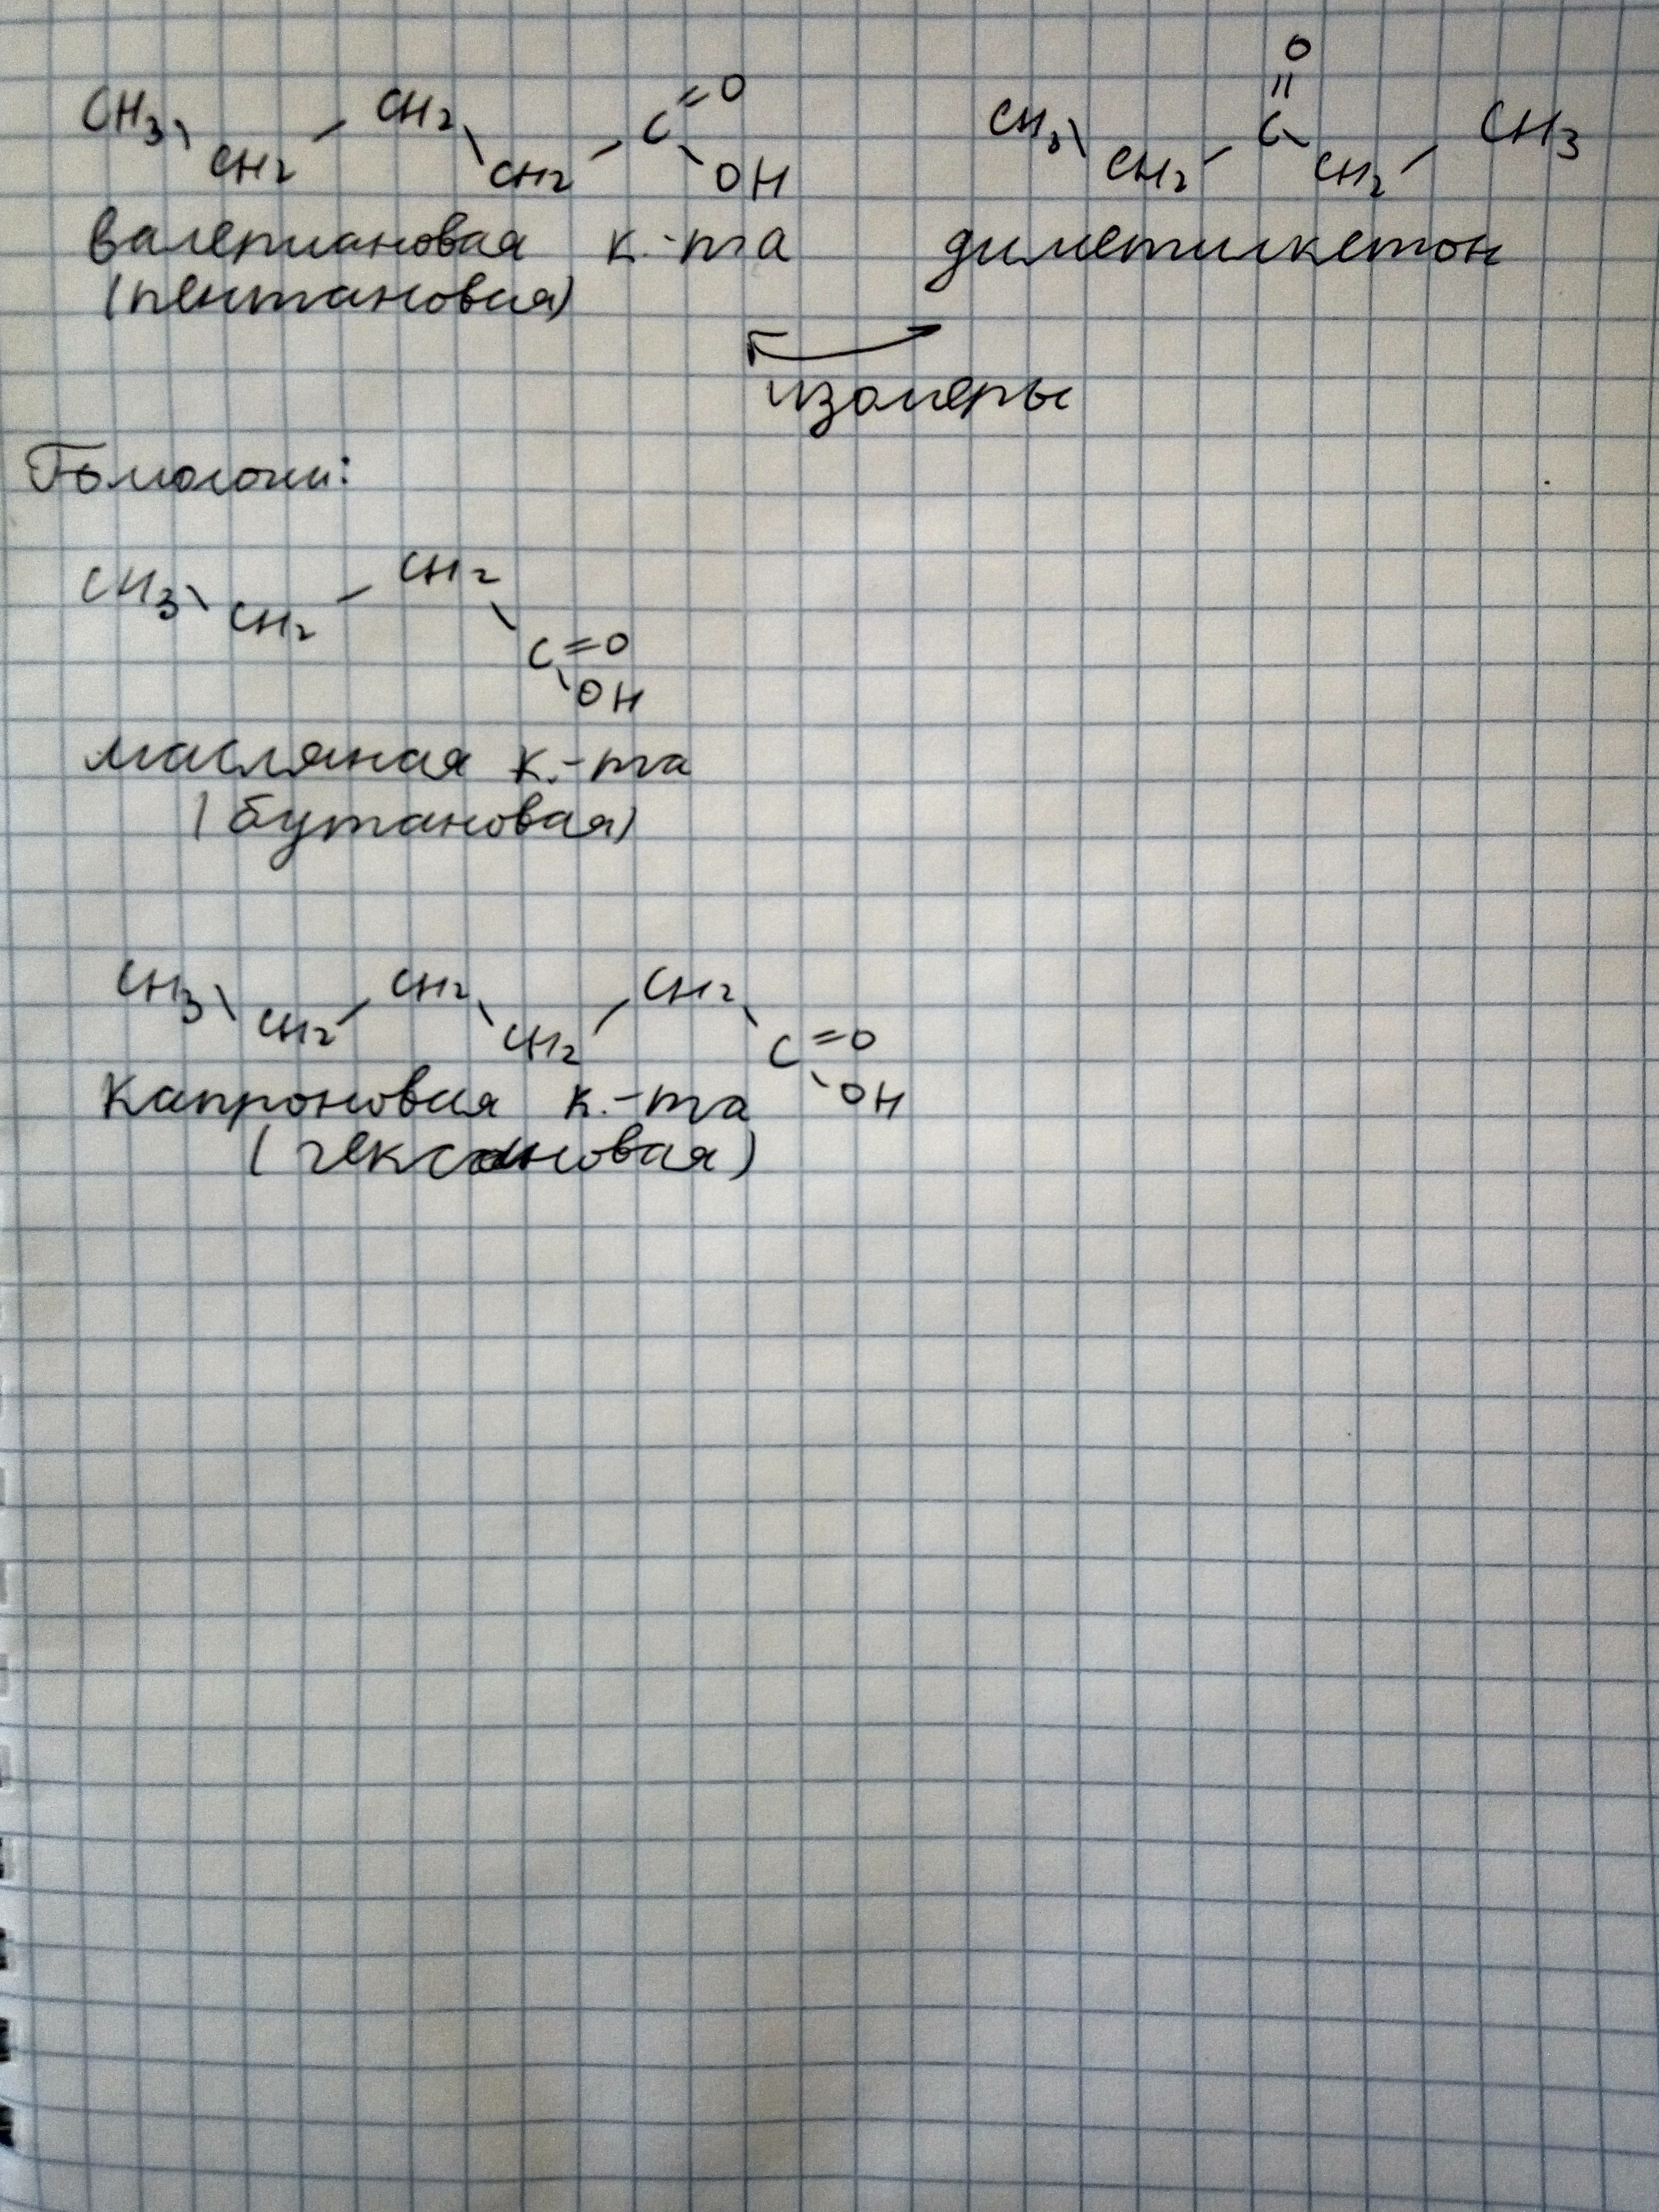 CH3 \ CH2 / CH2 \ CH2 / C =O \ OH
валериановая к.-та
(пентановая)
O
||
CH3 \ CH2 / C \ CH2 / CH3
диметилкетон
изомеры
Гомологи:
CH3 \ CH2 / CH2 \ C =O \ OH
масляная к.-та
(бутановая)
CH3 \ CH2 / CH2 \ CH2 / CH2 \ C =O \ OH
Капроновая к.-та
(гексановая)